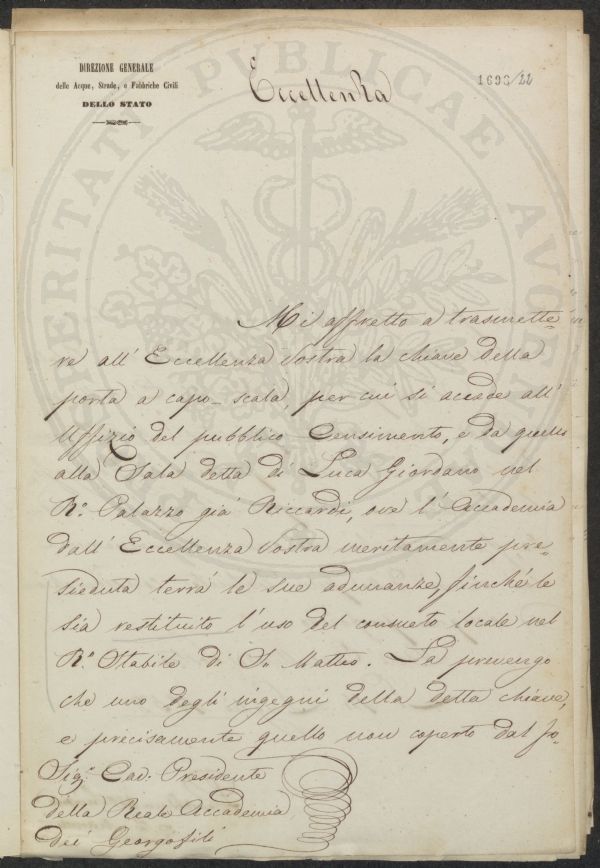 DIREZIONE GENERALE
delle Acque, Strade, e Fabbriche Civili
DELLO STATO
Eccellenza
1696/22
Mi affretto a trasmette=
re all'Eccellenza Vostra la chiave della
porta a capo-scala, per cui si accede all'
Uffizio del pubblico Censimento, e da quello
alla Sala detta di Luca Giordano nel
R.º Palazzo già Riccardi, ove l'Accademia
dall'Eccellenza Vostra meritamente pre=
sieduta terrà le sue adunanze, finché le
sia restituito l'uso del consueto locale nel
R.º Stabile di S. Matteo. La prevengo
che uno degli ingegni della detta chiave,
e precisamente quello non coperto dal fo=
Sig.r Cav. Presidente
della Reale Accademia
dei Georgofili